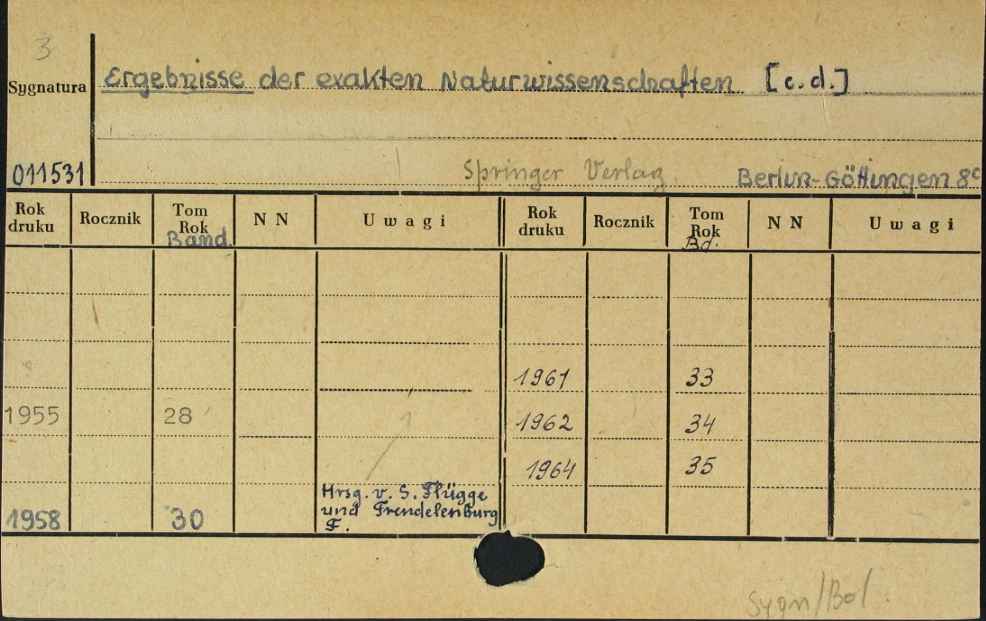 3
Sygnatura
Ergebnisse der exakten Naturwissenschaften [c.d.]
011531
Springer Verlag. Berlin-Göttingen 8°
Rok druku Rocznik Tom Rok Band. NN Uwagi Rok druku Rocznik Tom Rok Bd. NN Uwagi
1961 33
1955 28 1962 34
1964 35
Hrsg. v. S. Flügge
und Trendelenburg
1958 30 F.
Sygn/Bol.